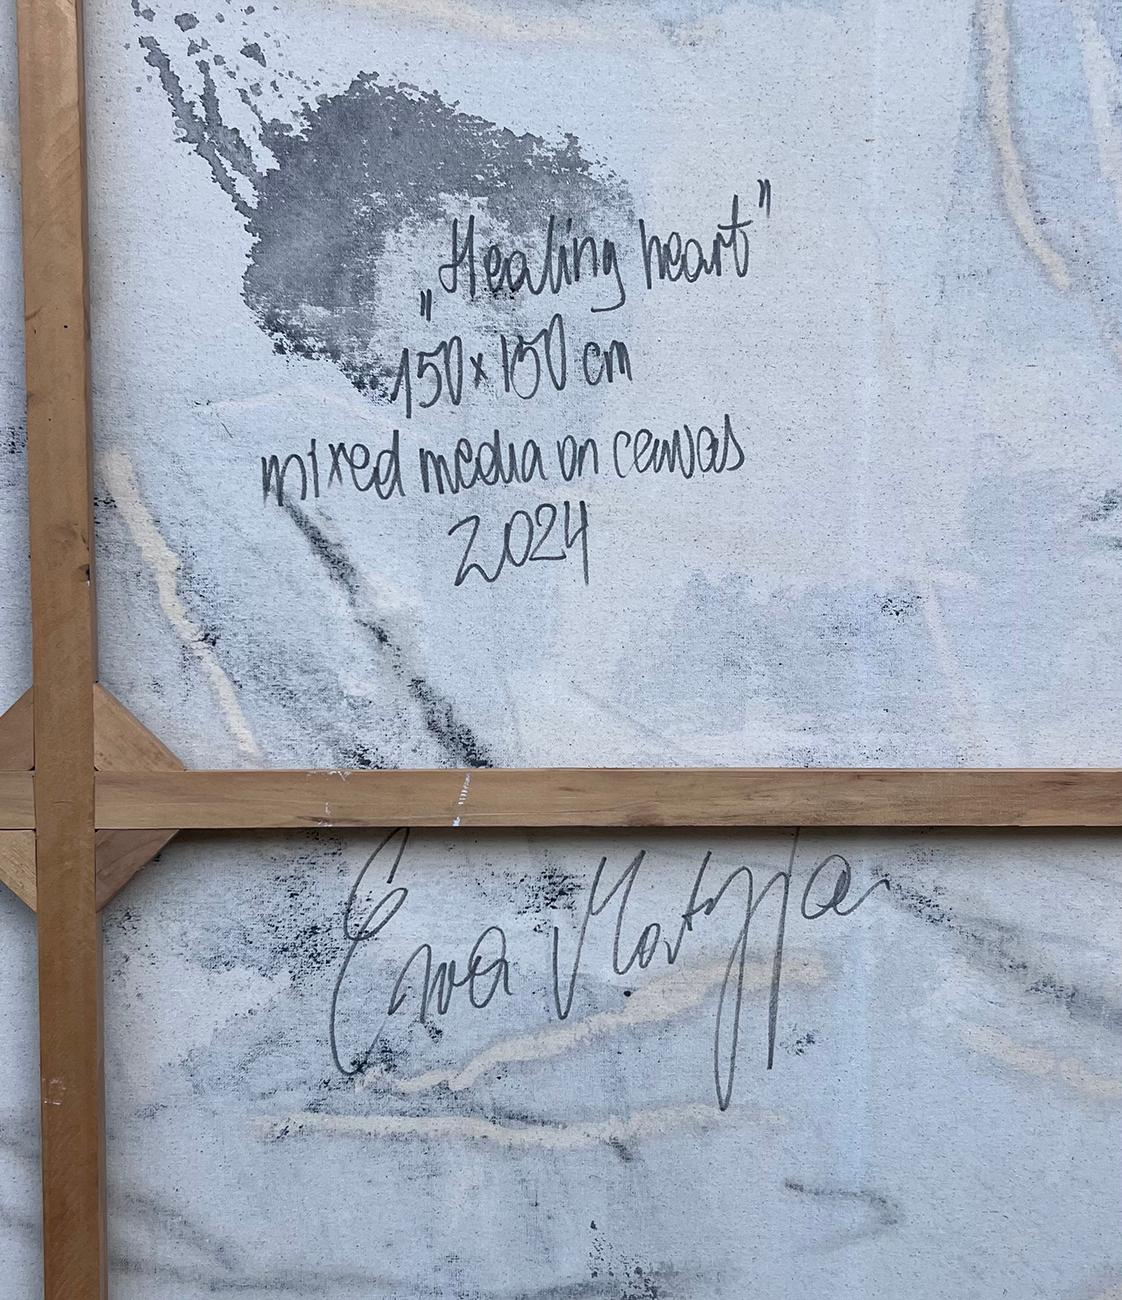 „Healing heart"
150x150 cm
mixed media on canvas
2024
Ewa Matyja